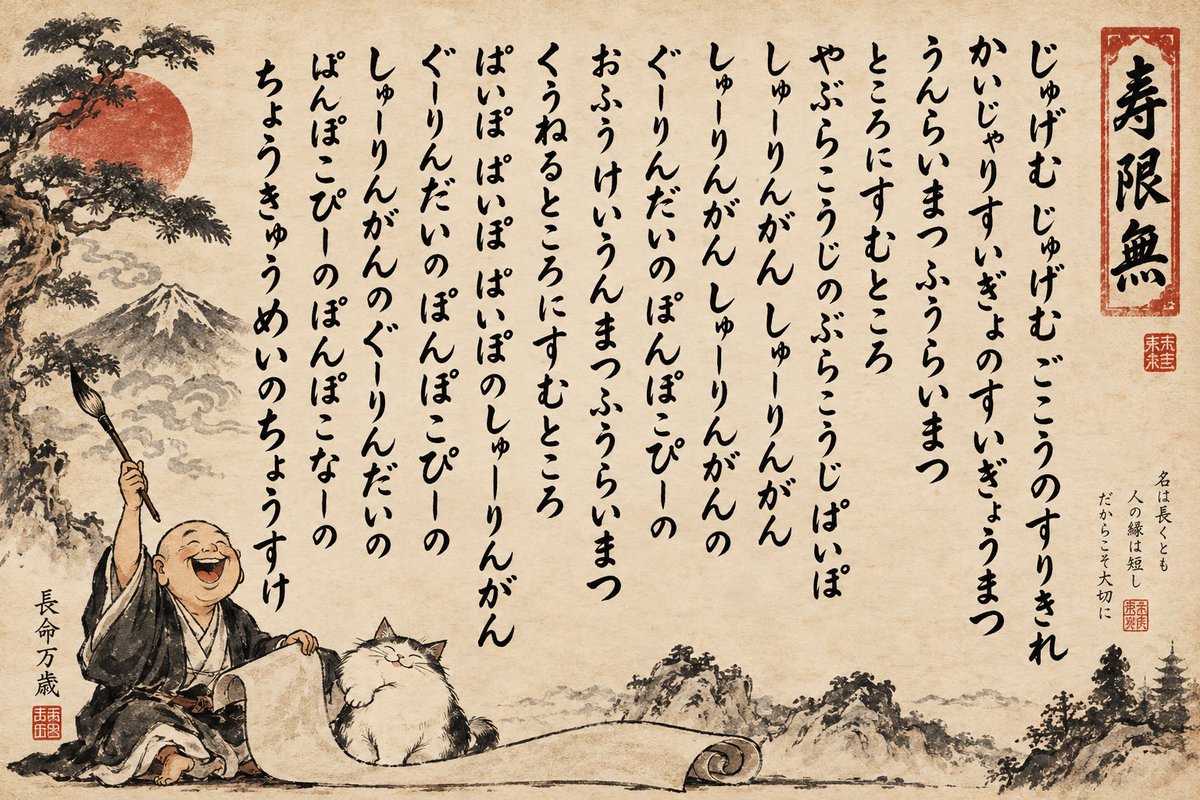 寿限無
じゅげむ じゅげむ ごこうのすりきれ
かいじゃりすいぎょのすいぎょうまつ
うんらいまつ ふうらいまつ
ところにすむところ
やぶらこうじのぶらこうじ ぱいぽ
しゅーりんがん しゅーりんがん
しゅーりんがん しゅーりんがんの
ぐーりんだいのぽんぽこぴーの
おふうけいうんまつふうらいまつ
くうねるところにすむところ
ぱいぽ ぱいぽ ぱいぽのしゅーりんがん
ぐーりんだいのぽんぽこぴーの
しゅーりんがんのぐーりんだいの
ぽんぽこぴーのぽんぽこなーの
ちょうきゅうめいのちょうすけ
名は長くとも
人の縁は短し
だからこそ大切に
長命万歳